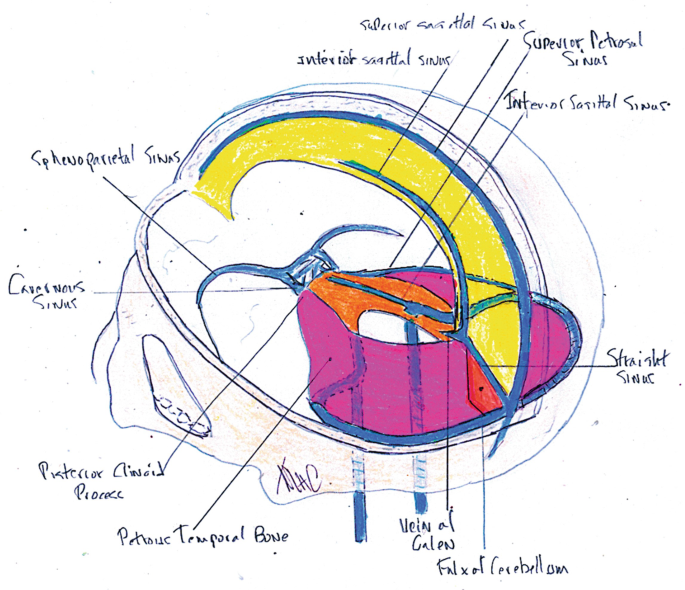 Superior sagittal sinus
Interior sagittal sinus
Superior Petrosal
Sinus
Interior Sagittal Sinus
Sphenoparietal Sinus
Cavernous
Sinus
Straight
Sinus
Posterior Clinoid
Process
Petrous Temporal Bone
Vein of
Galen
Falx of Cerebellum